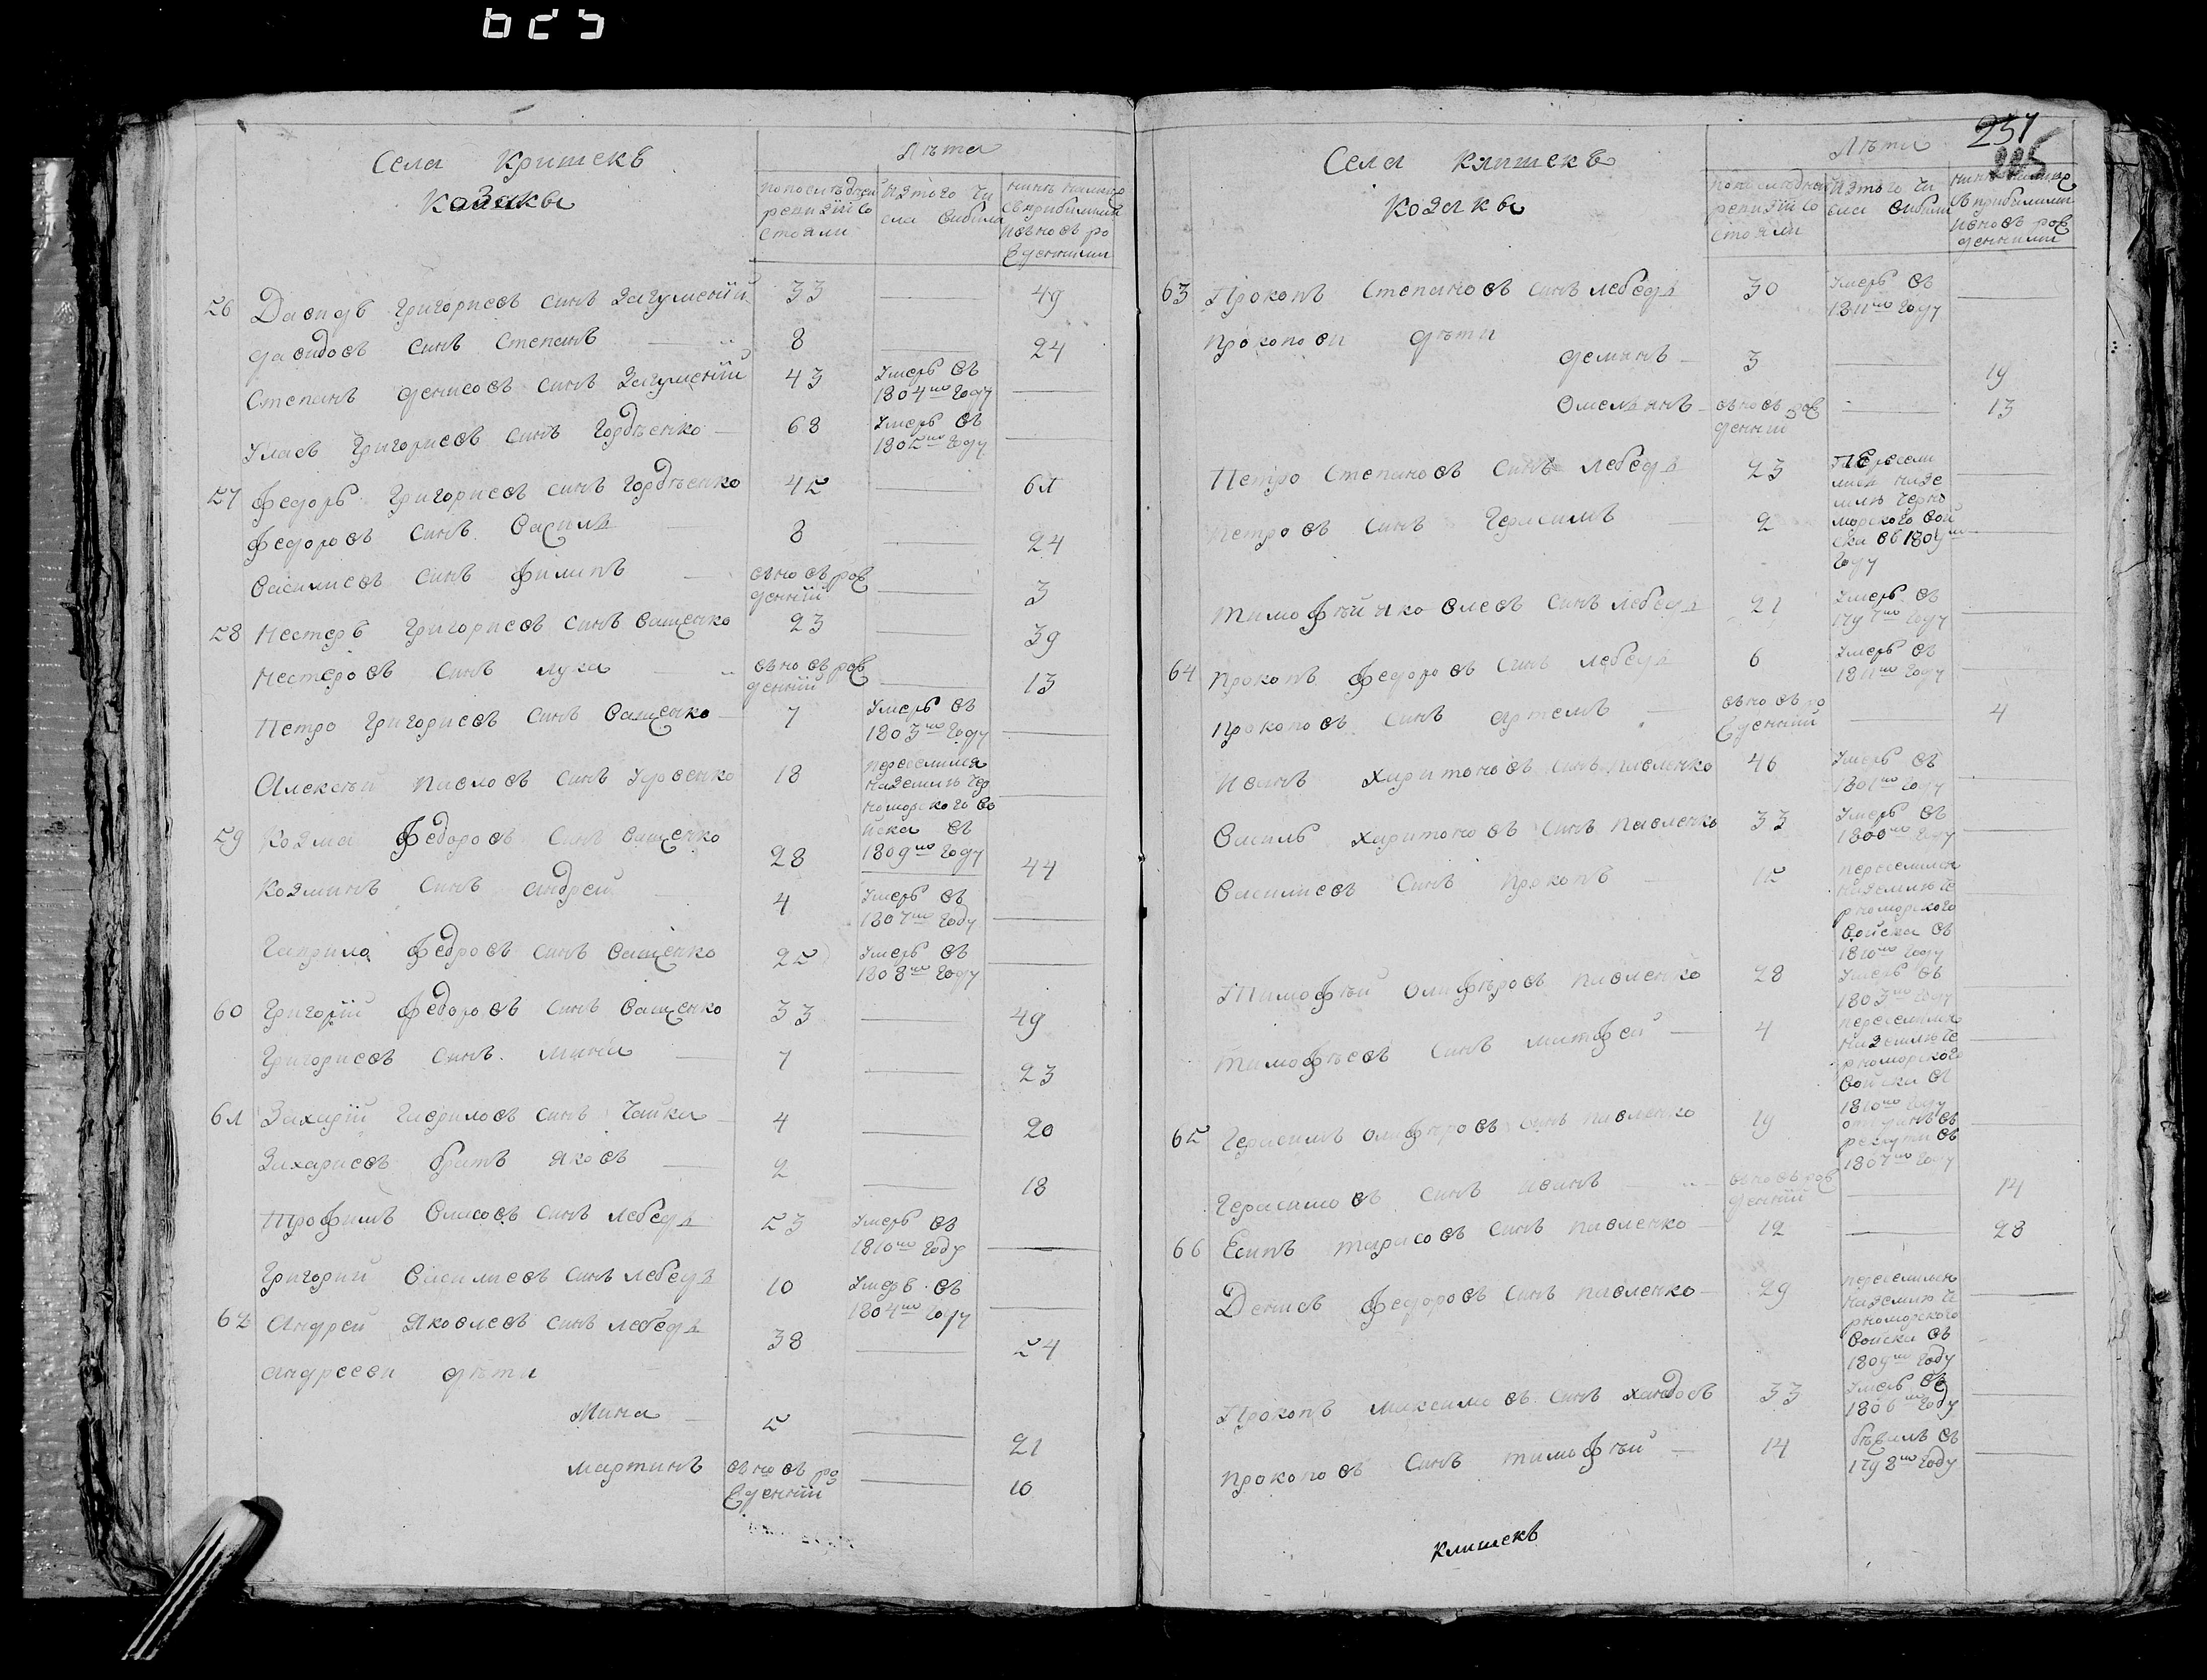 Села Кришекъ
Козакы
Лѣта
попоследней
ревизїи со
стояли
изтого чи
сла выбыло
56 Давидъ григориевъ синъ Загуменїй 33 — 49
давидовъ синъ Степанъ 8 — 24
Степанъ денисовъ синъ Загуменїй 43 Умеръ въ 1804мъ году —
Уласъ григориевъ синъ гордѣенко 68 Умеръ въ 1805мъ году —
57 Федоръ григориевъ синъ гордѣенко 45 — 61
Федоровъ синъ Василь 8 — 24
Василиевъ синъ Филипъ вновъ рожденнїй — 3
58 Нестеръ григориевъ синъ Ващенко 23 — 39
Нестеровъ синъ лука вновъ рожденнїй — 13
Петро григориевъ синъ Ващенко 7 Умеръ въ 1803мъ году —
Алексѣй павловъ синъ 18 переселился наземлю Черноморского войска въ 1809мъ году —
59 Козма Федоровъ синъ Ващенко 28 — 44
Козминъ синъ андрей 4 Умеръ въ 1807мъ году —
Гаврило Федоровъ синъ Ващенко 25 Умеръ въ 1808мъ году —
60 Григорїй Федоровъ синъ Ващенко 33 — 49
Григориевъ синъ мина 7 — 23
61 Захарїй гавриловъ синъ Чайка 4 — 20
Захариевъ братъ яковъ 2 — 18
Трофимъ Власовъ синъ лебедь 53 Умеръ въ 1810мъ году —
Григорий Василиевъ синъ лебедь 10 Умеръ въ 1804мъ году —
62 Андрей Яковлевъ синъ лебедь 38 — 54
андрееви дѣти
Мина 5 — 21
мартинъ вновъ рожденнїй — 10
237
Села Клишекъ
Козакы
Лѣта
попоследней
ревизїи со
стояли
изтого чи
сла выбыли
63 Прокопъ Степановъ синъ лебедь 30 Умеръ въ 1811мъ году —
прокопови дѣти
демянъ 3 — 19
Омелянъ вновъ рожденнїй — 13
Петро Степановъ синъ лебедь 23 переселились наземлю Черноморского войска въ 1809мъ году —
петровъ синъ герасимъ 2 —
тимофѣй яковлевъ синъ лебедь 21 Умеръ въ 1797мъ году —
64 прокопъ Федоровъ синъ лебедь 6 Умеръ въ 1811мъ году —
прокоповъ синъ артемъ вновъ рожденнїй — 4
Иванъ харитоновъ синъ павленко 46 Умеръ въ 1801мъ году —
Василь харитоновъ синъ павленко 33 Умеръ въ 1800мъ году —
Василиевъ синъ прокопъ 15 переселился наземлю Черноморского войска въ 1810мъ году —
Тимофѣй олифѣровъ павленко 28 Умеръ въ 1803мъ году —
тимофѣевъ синъ матфей 4 переселился наземлю Черноморского войска въ 1810мъ году —
65 Герасимъ олифѣровъ синъ павленко 19 отданъ въ рекрути въ 1807мъ году —
Герасимовъ синъ иванъ вновъ рожденнїй — 14
66 Есипъ тарасовъ синъ павленко 12 — 28
Денисъ Федоровъ синъ павленко 29 переселился наземлю Черноморского войска въ 1809мъ году —
Прокопъ максимовъ синъ хандовъ 33 Умеръ въ 1806мъ году —
прокоповъ синъ тимофѣй 14 бѣжалъ въ 1798мъ году —
Клишекъ